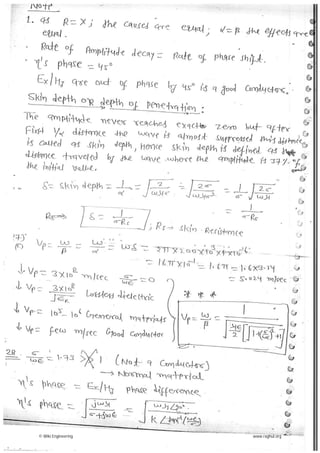 Note
1. as R = X; the causes are equal, α = β the effects are equal.
Rate of Amplitude decay = Rate of phase shift.
η's phase = 45°
Ex/Hy are out of phase by 45° is a good Conductor.
Skin depth OR depth of penetration :
The amplitude never reaches exact zero but after
First 1/α distance the wave is almost suppressed this distance
is called as skin depth, Hence skin depth is defined as the
distance traveled by the wave where the amplitude is 37% of
the initial value.
δ = skin depth = 1/α = √(2/ωμσ) = √(2σ/ωμσ²) = 1/σ √(2σ/ωμ)
= 1/σRs
δ = 1/σRs ; Rs → Skin Resistance
Vp = ω/β = ω/α = ωδ = 2π×
= 16π×10⁻¹ = 1.6π = 1.6×3.14
= 5.024 m/sec
↓ Vp = 3×10⁸ m/sec σ/ωε = 0
↓ Vp = 3×10⁸/√εr Lossless dielectric
↓ Vp = 10⁵ - 10⁶ General materials
↓ Vp = few m/sec Good Conductor
Vp = ω/β = 1
28 σ/ωε = 1.73 1 (Not a Conductor)
→ Normal material
η's phase = Ex/Hy phase difference
η's phase = √(jωμ/σ+jωε) =
© Wiki Engineering
www.raghul.org